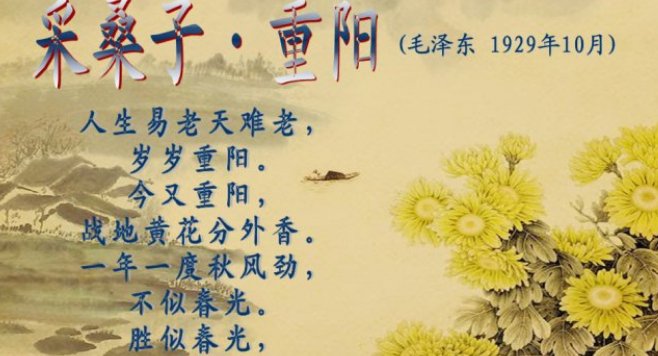 采桑子·重阳
(毛泽东 1929年10月)
人生易老天难老，
岁岁重阳。
今又重阳，
战地黄花分外香。
一年一度秋风劲，
不似春光。
胜似春光，